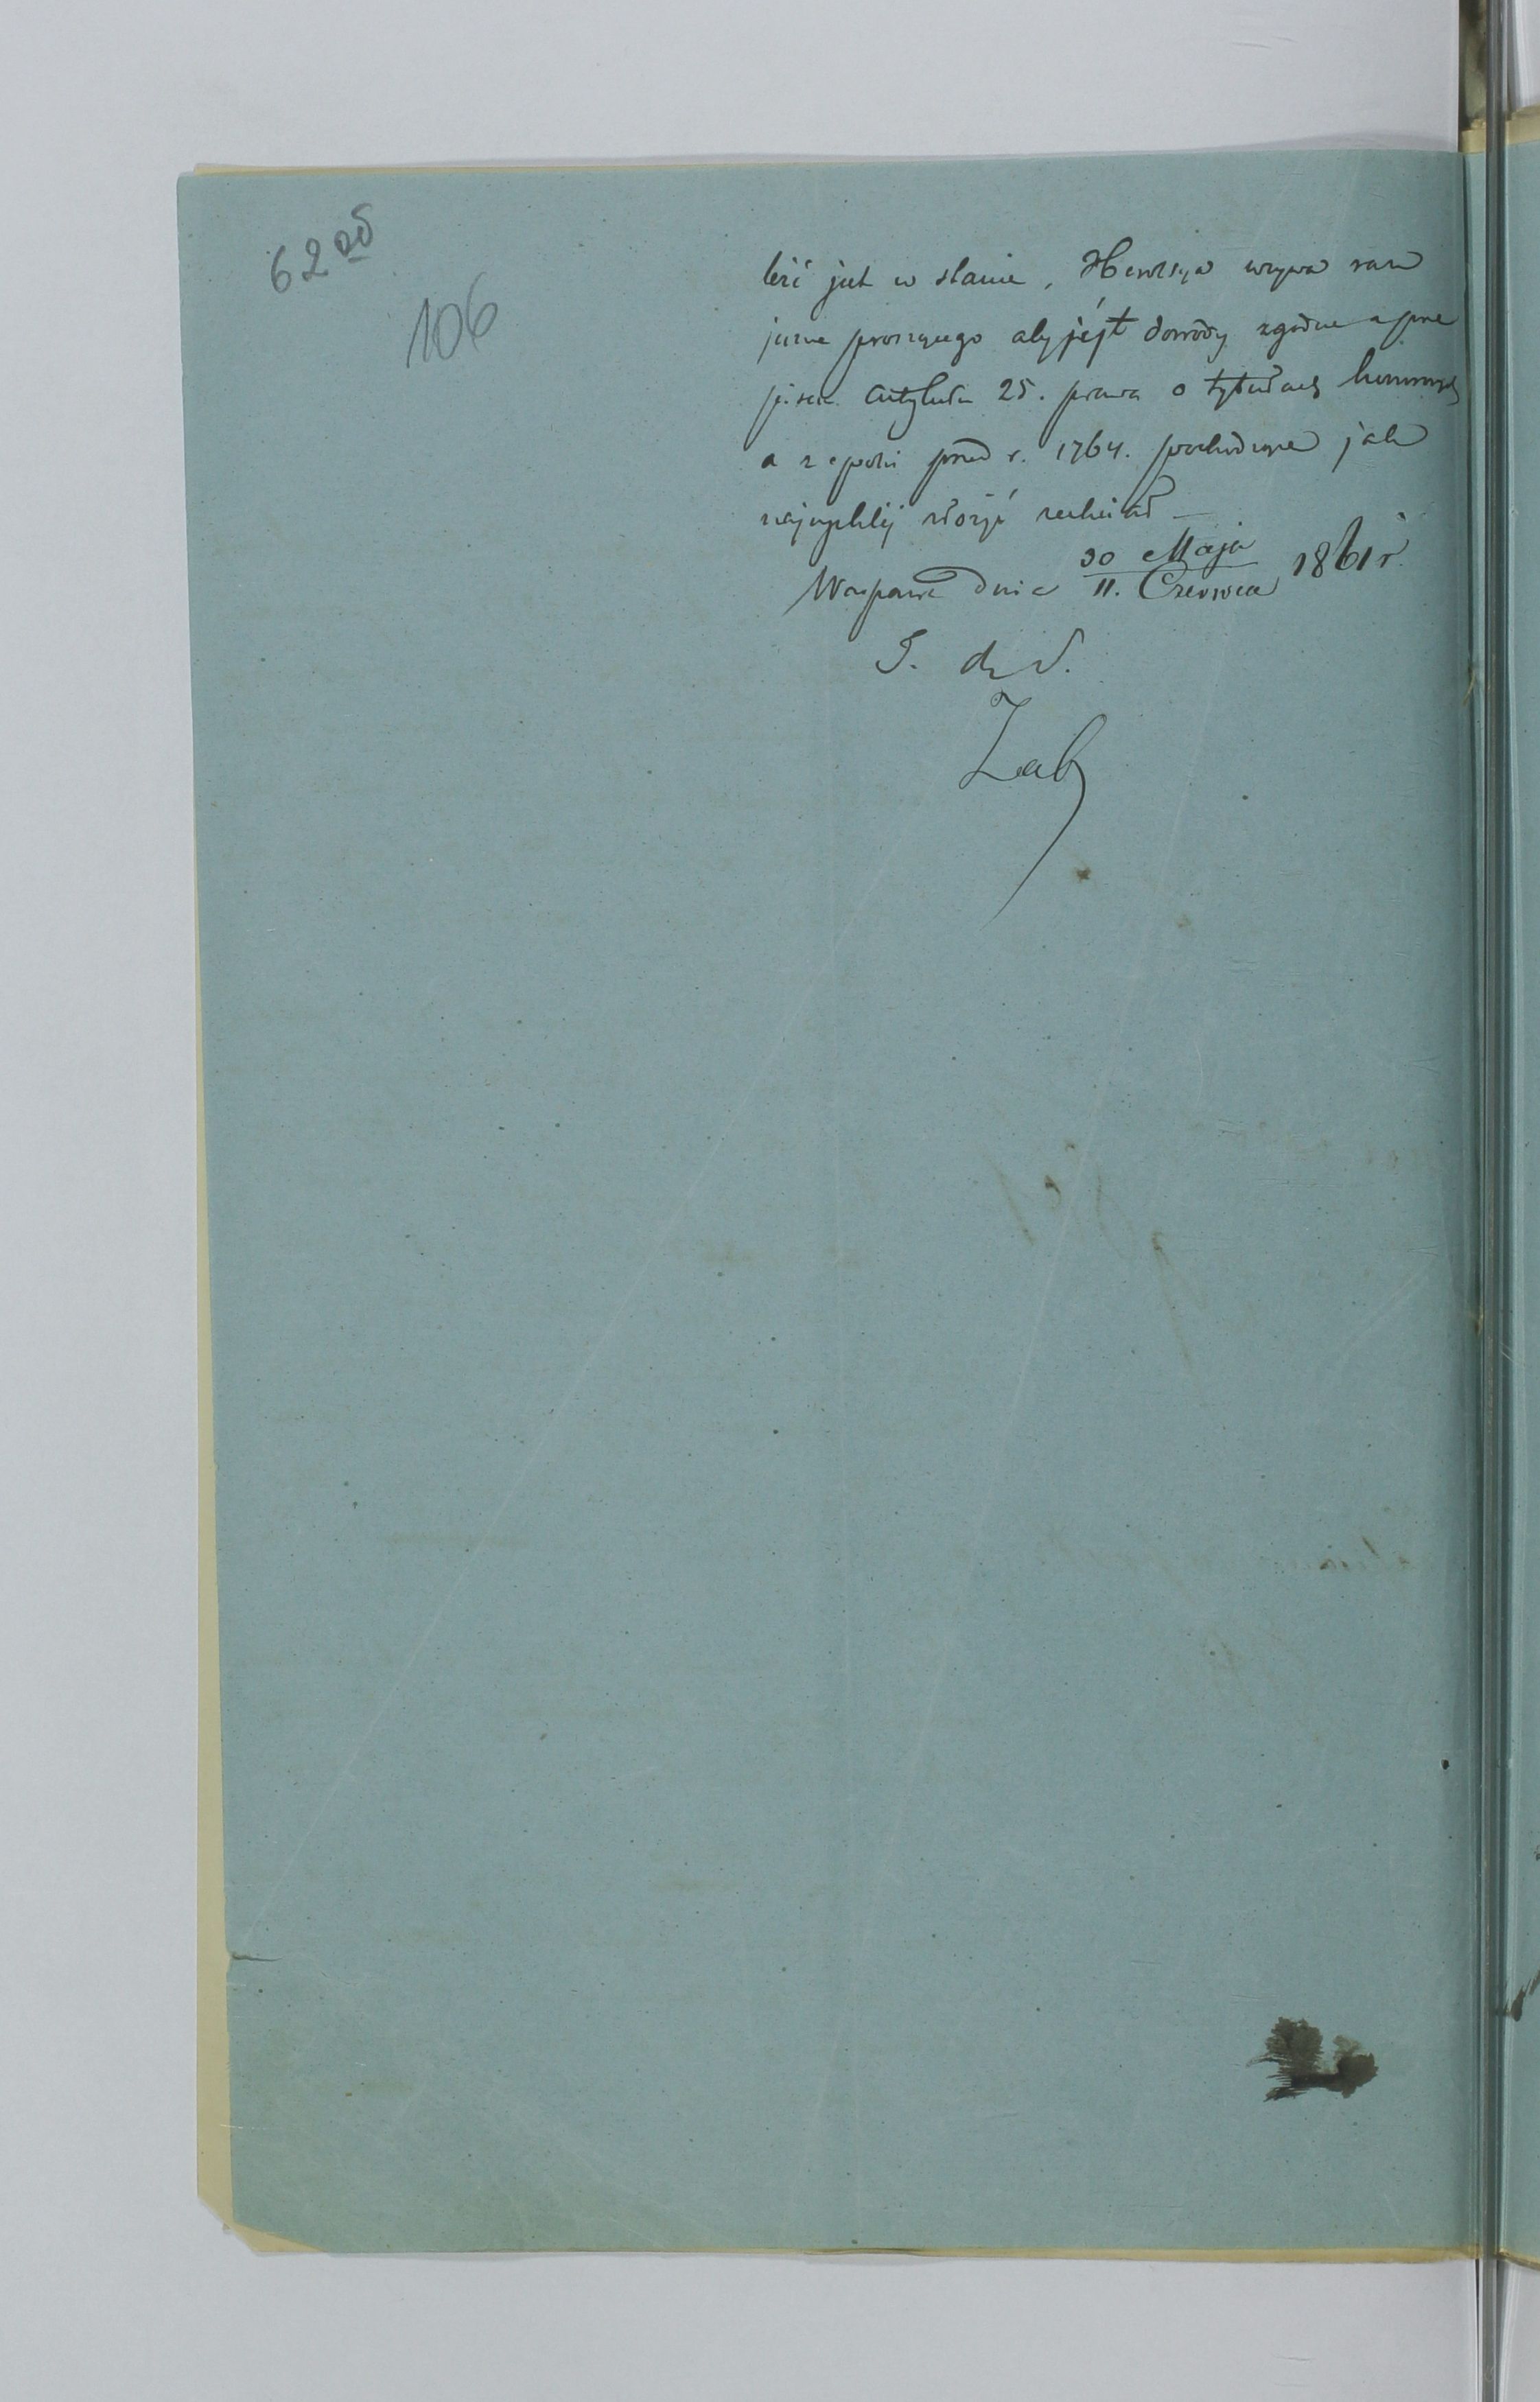 62 od
106
leźć jest w stanie, Heroldya wzywa
proszącego aby jéj dowody zgodne z prze
pisem Artykułu 25. prawa o tytułach
a z epoki przed r. 1764. pochodzące jak
najrychlej złożyć zechciał —
Warszawa dnia 30 Maja / 11. Czerwca 1861 r.
Zab